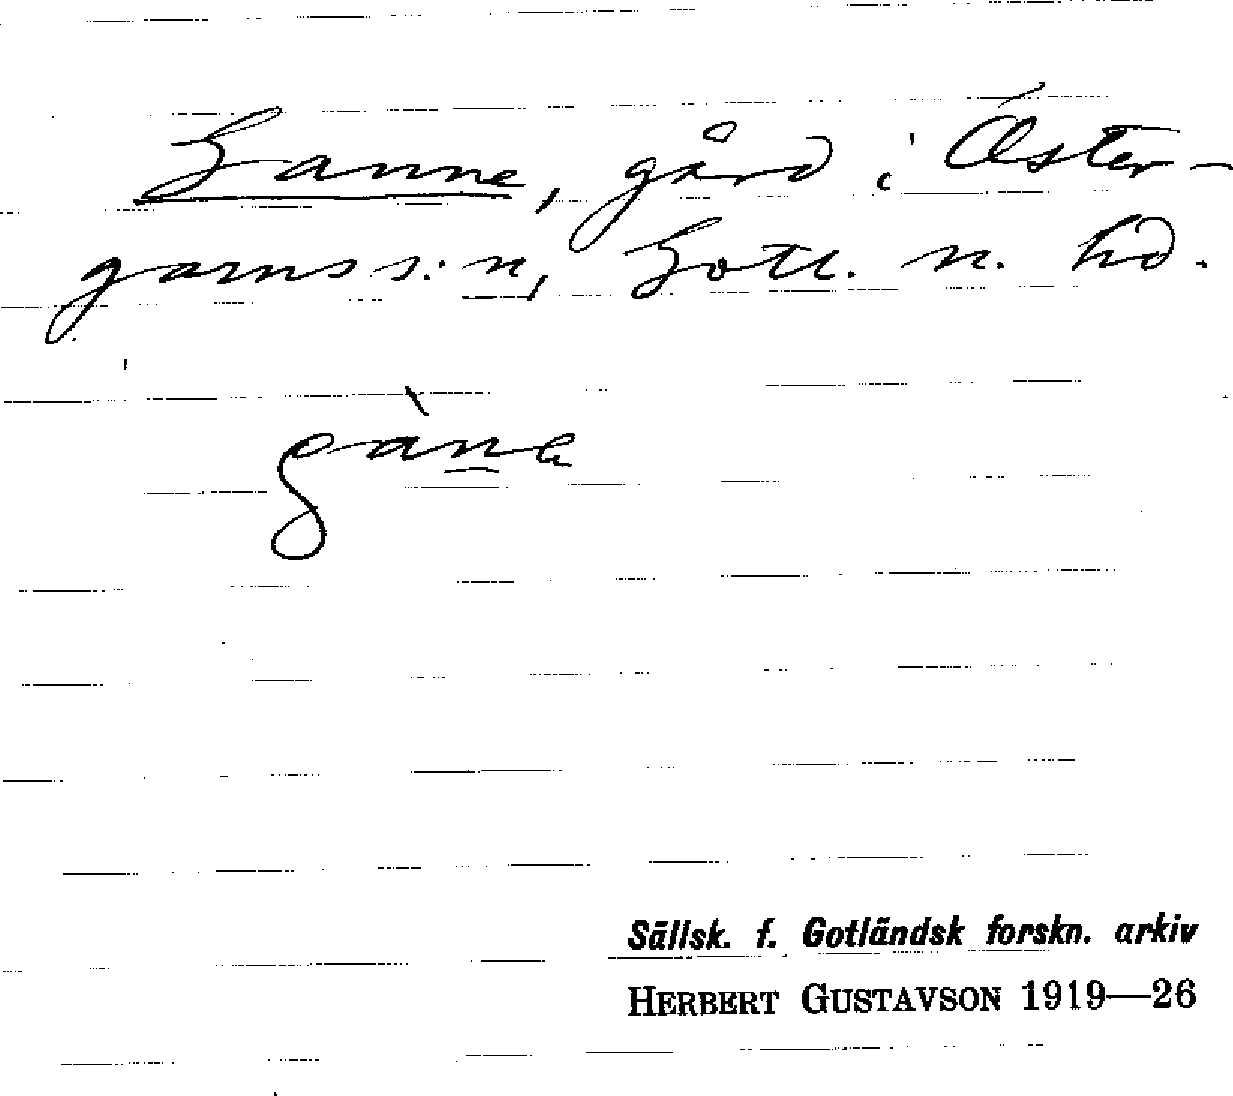 Ganne, gård i Öster-
garns s:n, Gotl. n. hd.
gàn̲e
Sällsk. f. Gotländsk forskn. arkiv
HERBERT GUSTAVSON 1919—26